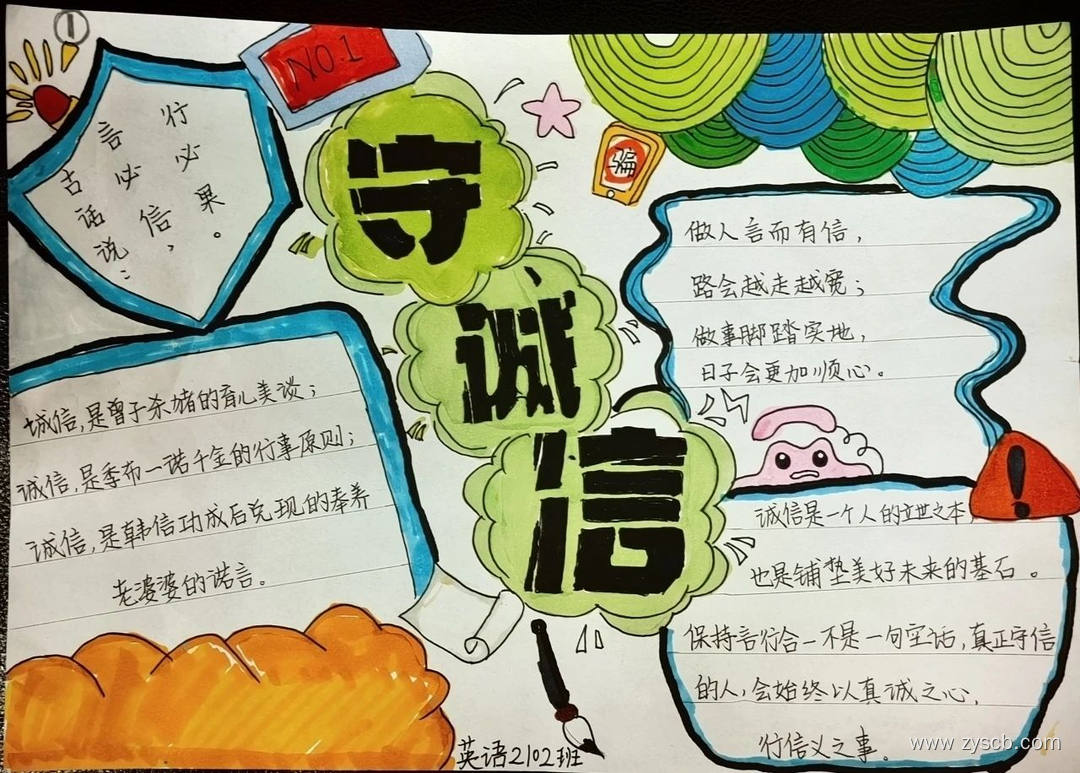 ①
NO.1
守
诚
信
骗
古话说：
言必信，
行必果。
诚信，是曾子杀猪的育儿美谈；
诚信，是季布一诺千金的行事原则；
诚信，是韩信功成后兑现的奉养
老婆婆的诺言。
做人言而有信，
路会越走越宽；
做事脚踏实地，
日子会更加顺心。
诚信是一个人的立世之本，
也是铺垫美好未来的基石。
保持言行合一不是一句空话，真正守信
的人，会始终以真诚之心，
行信义之事。
英语2102班
www.zyscb.com